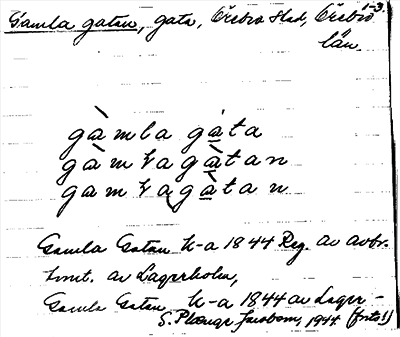 1-3.
Gamla gatan, gata, Örebro stad, Örebro
län.
gàmla gáta
gàmlagàtan
gamlagàtan
Gamla Gatan K-a 1844 Reg. av avbr.
av Lagerholm,
Gamla Gatan K-a 1844 av Lager-
S. Jacobson, 1944 (forts!)